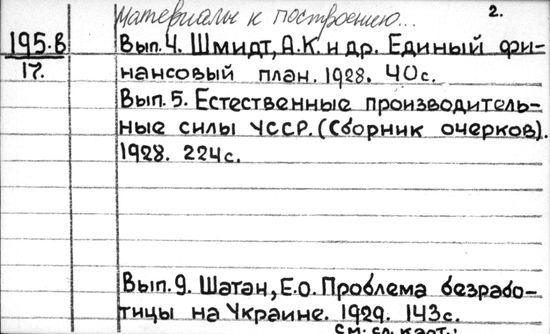 Материалы к построению... 2.
195.В
17.
Вып. 4. Шмидт, А.К. и др. Единый фи-
нансовый план. 1928. 40с.
Вып. 5. Естественные производитель-
ные силы УССР. (Сборник очерков).
1928. 224с.
Вып. 9. Шатан, Е.О. Проблема безрабо-
тицы на Украине. 1929. 143с.
см. сл. карт.: